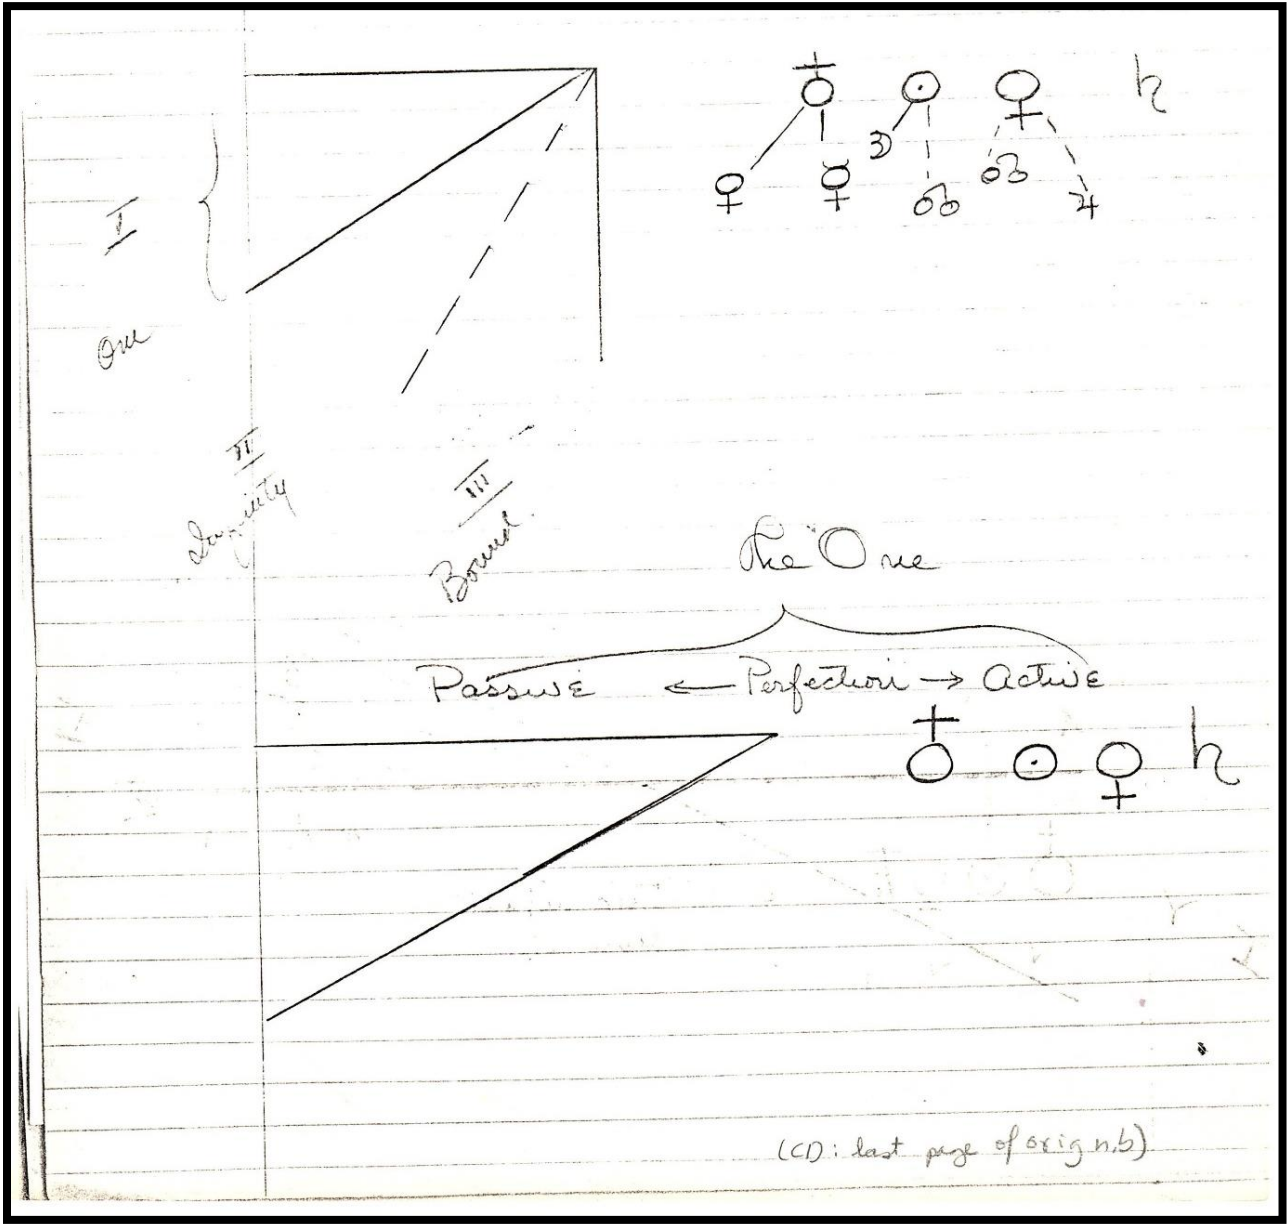 ♁ ☉ ♀ ♄
☽
♀ ☿ ♃
I
One
II
Infinity
III
Bound.
The One
Passive ← Perfection → Active
♁ ☉ ♀ ♄
(CD: last page of orig n.b)